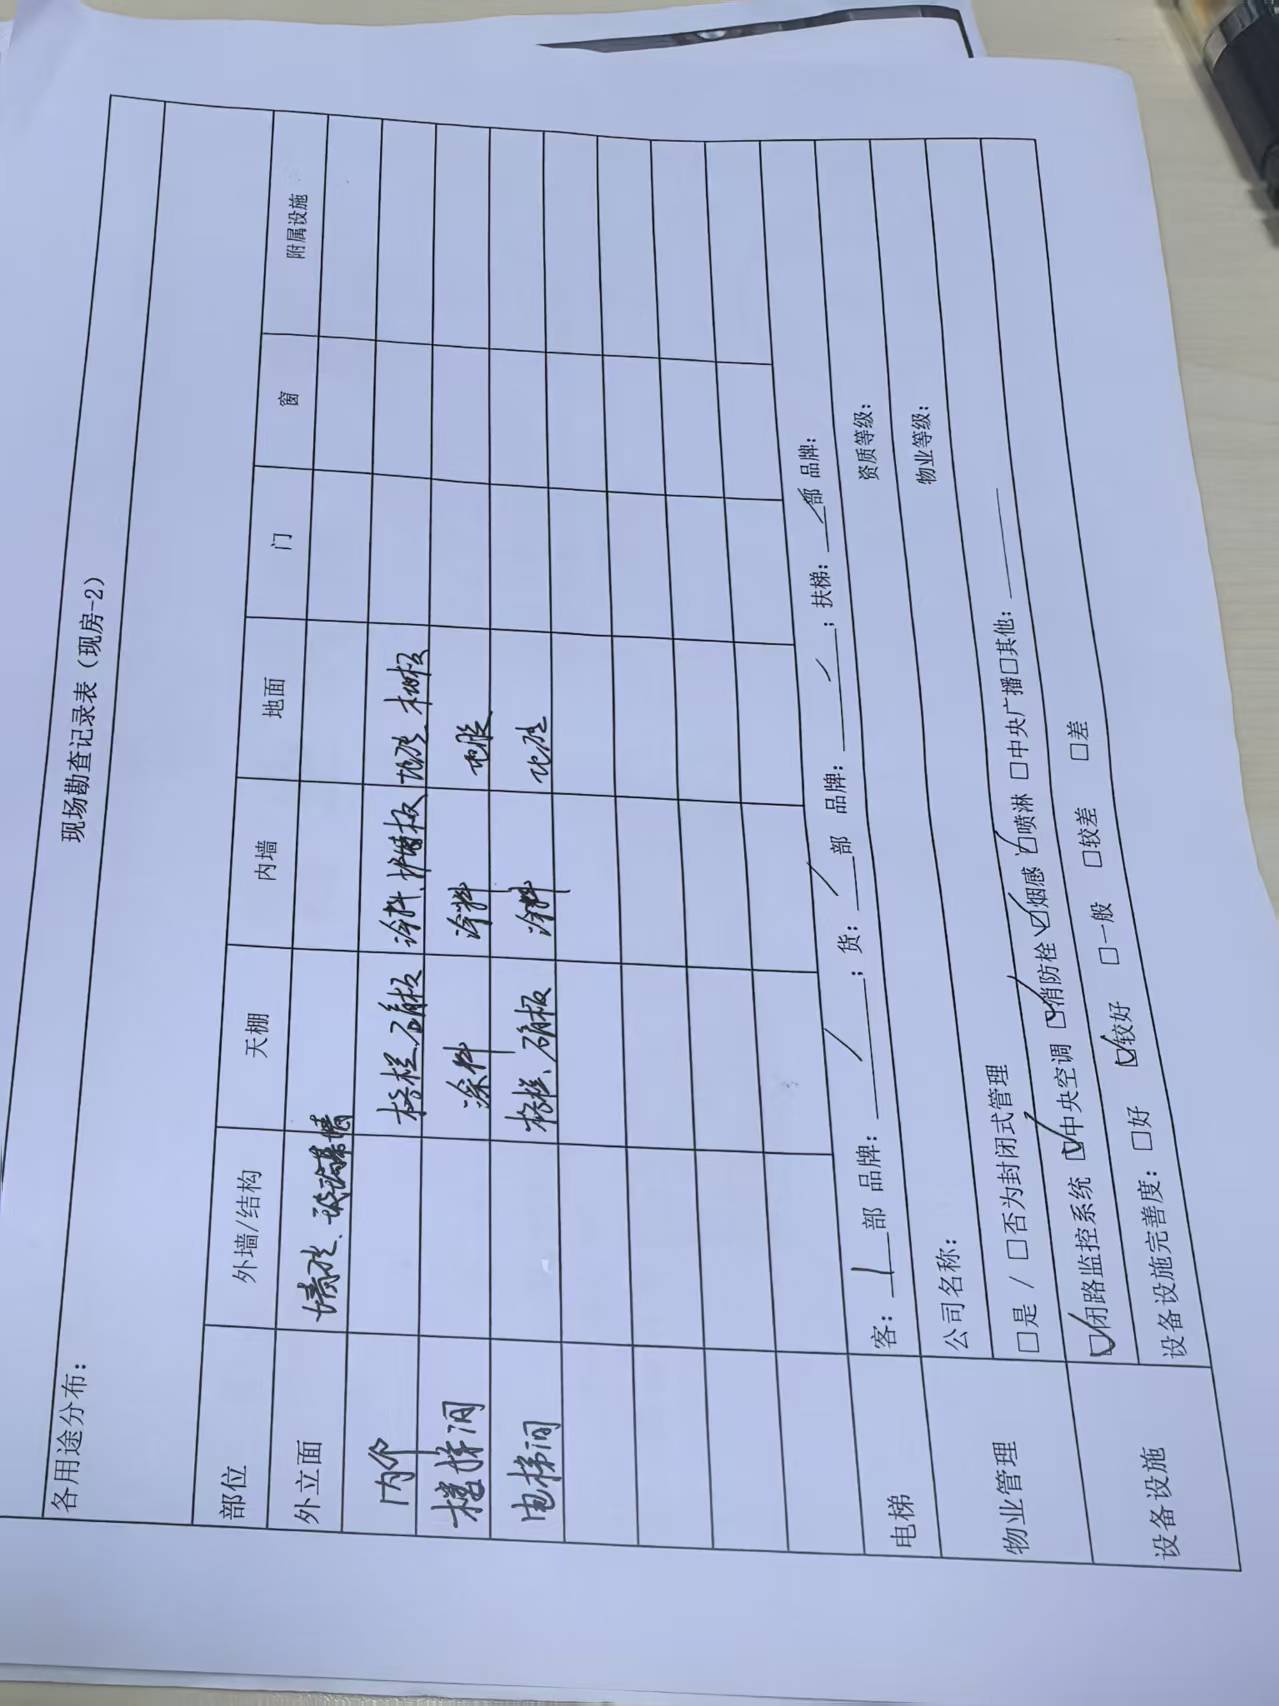 现场勘查记录表（现房-2）
各用途分布：
部位 外墙/结构 天棚 内墙 地面 门 窗 附属设施
外立面 墙砖、玻璃幕墙
内部 格栅、石膏板 涂料、护墙板 地砖、木地板
楼梯间 涂料 涂料 地胶
电梯间 格栅、石膏板 涂料 地砖
电梯 客：1部 品牌： / ；货： / 部 品牌： / ；扶梯： / 部 品牌：
物业管理 公司名称： 资质等级：
□是 / □否为封闭式管理 物业等级：
设备设施 ☑闭路监控系统 ☑中央空调 ☑消防栓 ☑烟感 ☑喷淋 □中央广播□其他：
设备设施完善度：□好 ☑较好 □一般 □较差 □差